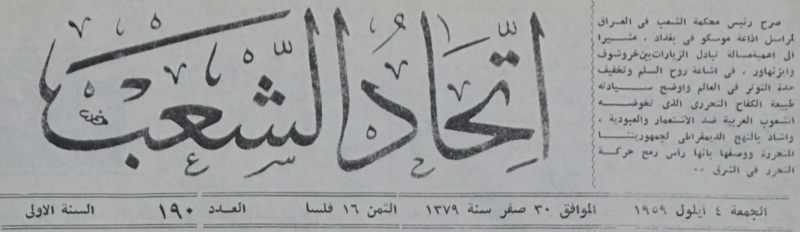 اتحاد الشعب
صرح رئيس محكمة الشعب في العراق
لمراسل اذاعة موسكو في بغداد ، مشيرا
الى اهمية مسالة تبادل الزيارات بين خروشوف
وايزنهاور ، في اشاعة روح السلم وتخفيف
حدة التوتر في العالم واوضح سيادته
طبيعة الكفاح التحرري الذي تخوضه
الشعوب العربية ضد الاستعمار والعبودية ،
واشاد بالنهج الديمقراطي لجمهوريتنا
المتحررة ووصفها بأنها رأس رمح حركة
التحرر في الشرق ..
الجمعة ٤ ايلول ١٩٥٩ الموافق ٣٠ صفر سنة ١٣٧٩ الثمن ١٦ فلسا العدد ١٩٠ السنة الاولى